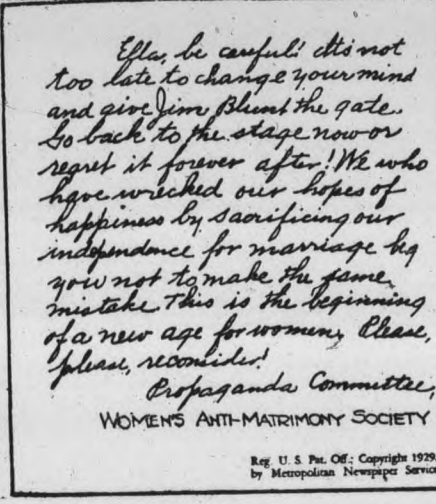 Ella, be careful! It's not
too late to change your mind
and give Jim Blunt the gate.
Go back to the stage now or
regret it forever after! We who
have wrecked our hopes of
happiness by sacrificing our
independence for marriage beg
you not to make the same
mistake. This is the beginning
of a new age for women. Please,
please, reconsider!
Propaganda Committee,
WOMEN'S ANTI-MATRIMONY SOCIETY
Reg. U. S. Pat. Off.; Copyright 1929,
by Metropolitan Newspaper Service